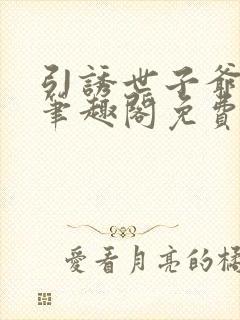 引誘世子爺
筆趣閣免費
愛看月亮的橘